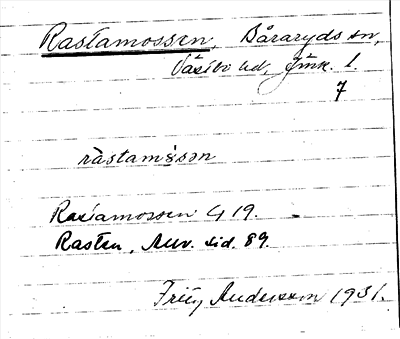 Rastamossen, Båraryds sn,
Västbo hd, Jönk. l.
7
rastamosən
Rastamossen G 19.
Rasten, Auv. sid. 89.
Fritz Andersson 1931.